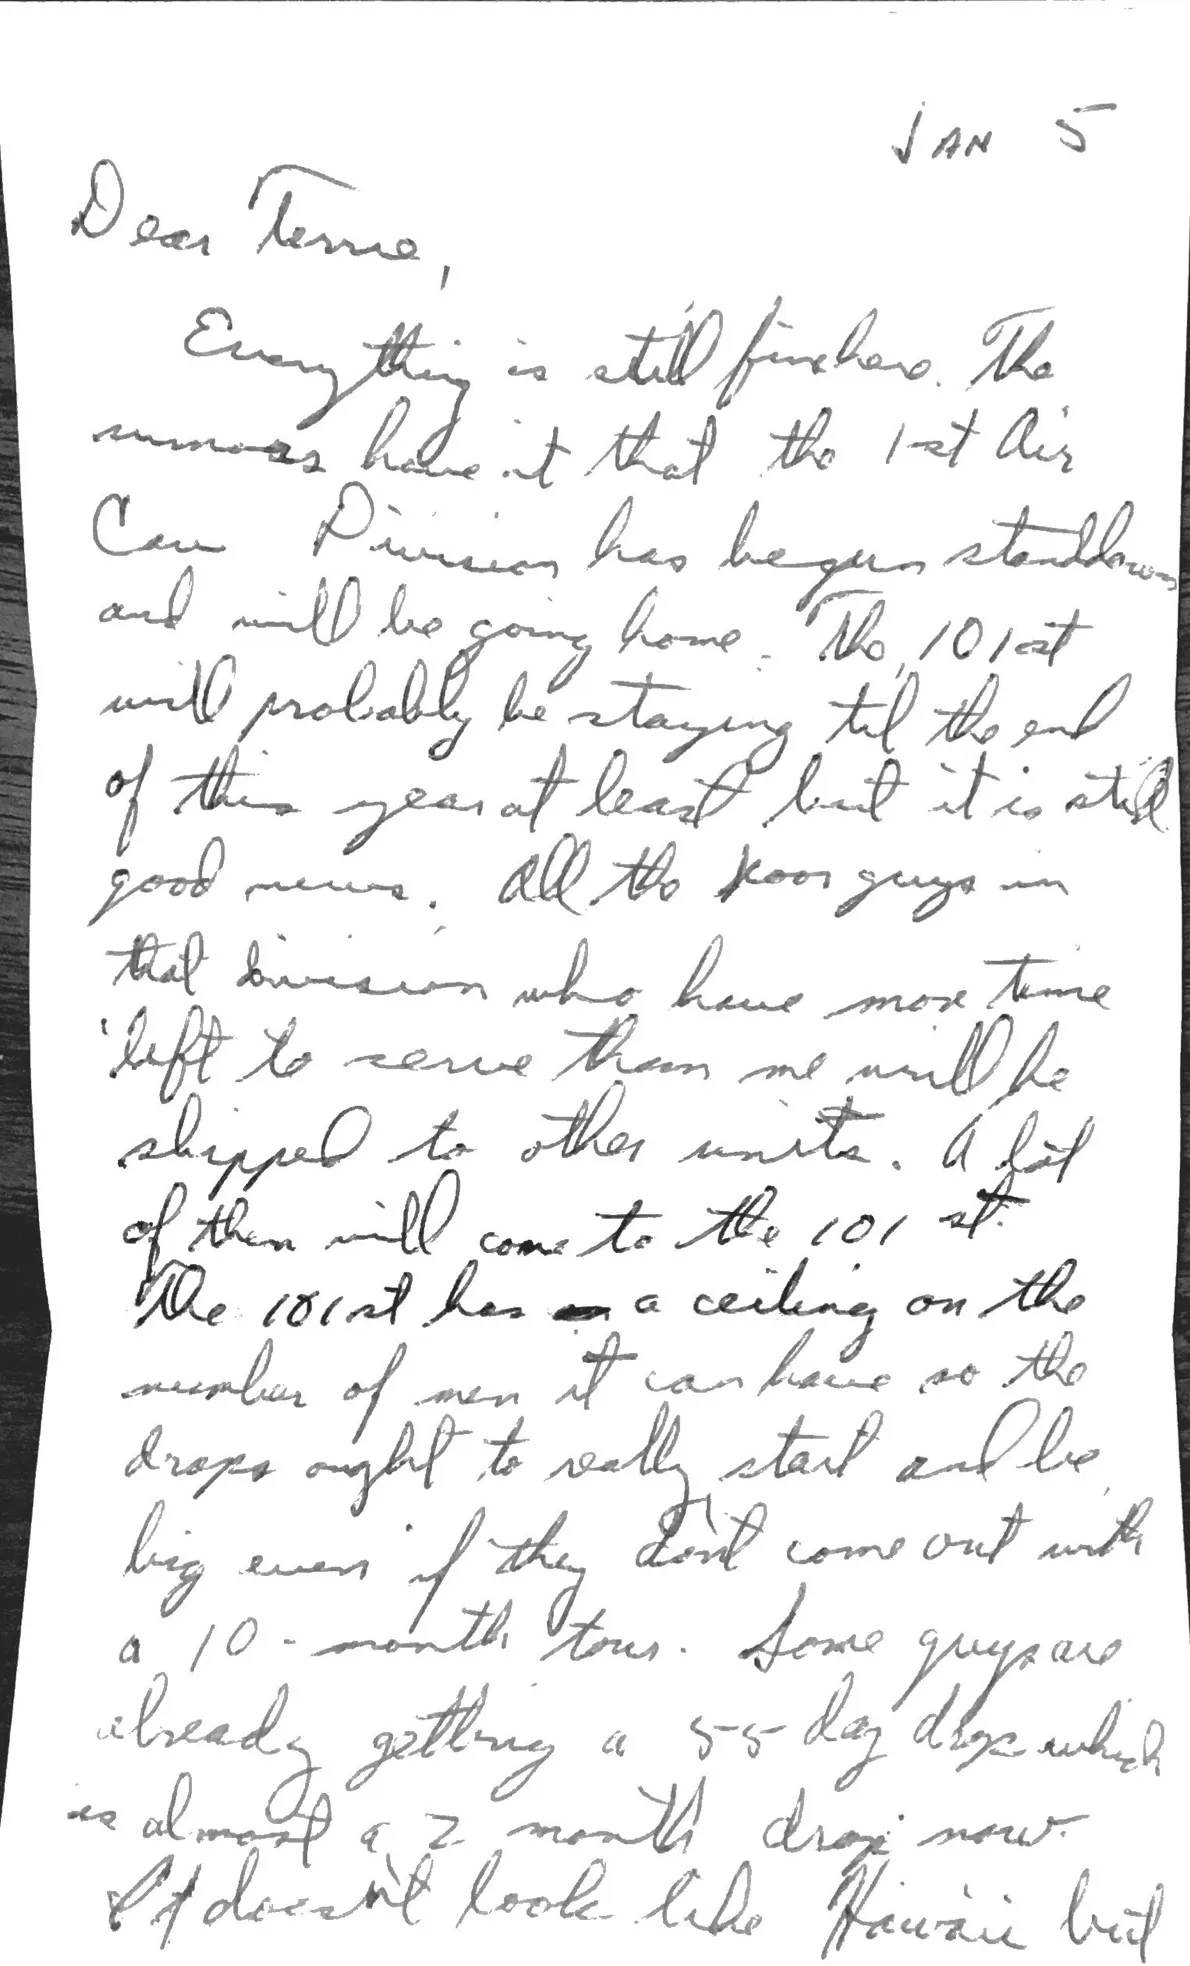 JAN 5
Dear Terrie,
Everything is still fine here. The
rumors have it that the 1st Air
Cav Division has begun standdown
and will be going home. The 101st
will probably be staying til the end
of this year at least but it is still
good news. All the poor guys in
that division who have more time
left to serve than me will be
shipped to other units. A lot
of them will come to the 101st.
The 101st has a ceiling on the
number of men it can have so the
drops ought to really start and be
big even if they don't come out with
a 10-month tour. Some guys are
already getting a 55 day drop which
is almost a 2 month drop now.
It doesn't look like Hawaii but